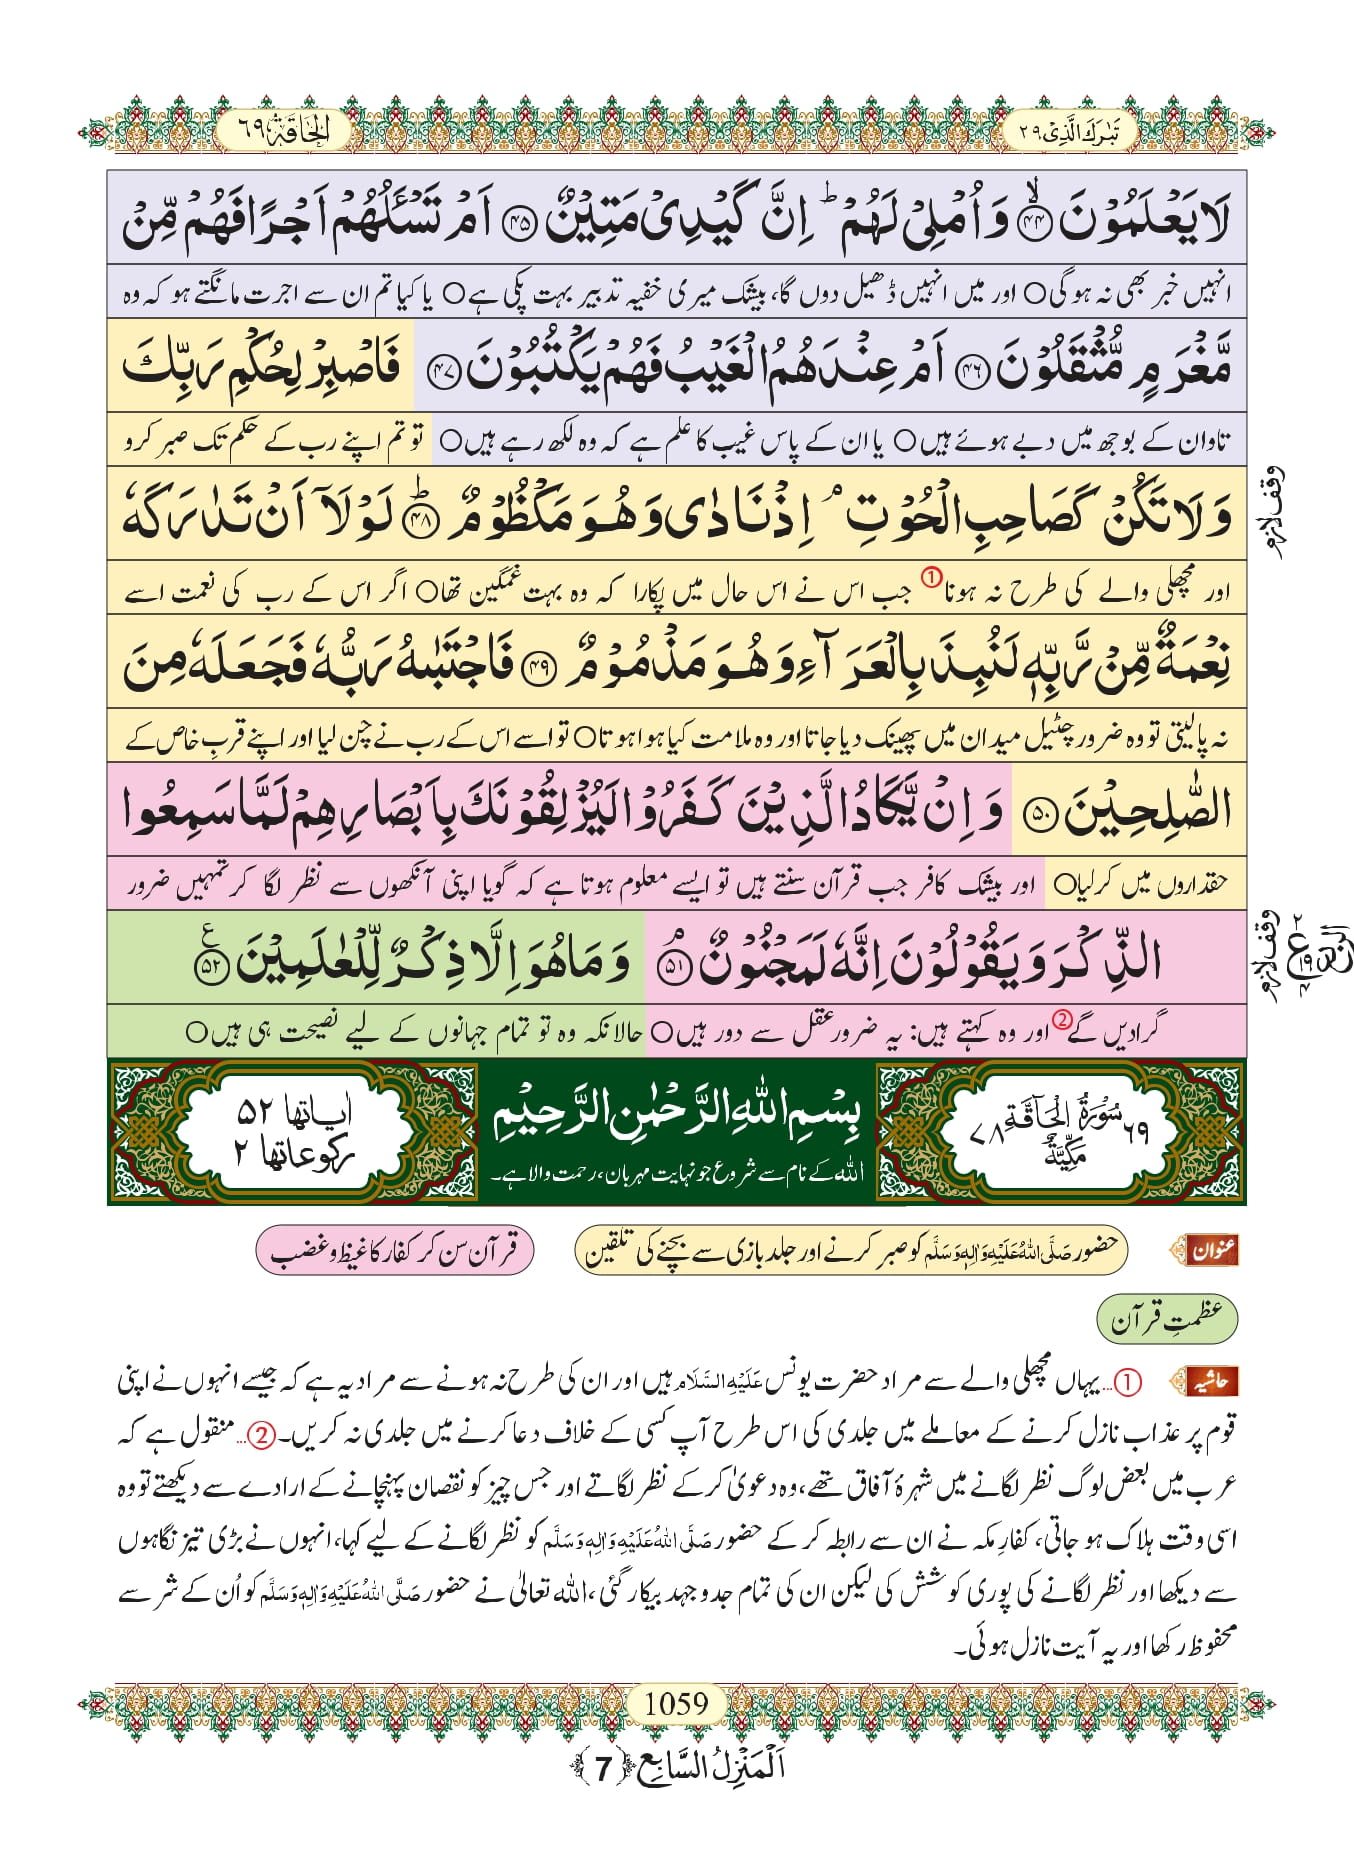 تَبٰرَكَ الَّذِیْ ۲۹
اَلْحَآقَّة ۶۹
لَا یَعْلَمُوْنَۙ﴿۴۴﴾ وَ اُمْلِیْ لَهُمْؕ اِنَّ كَیْدِیْ مَتِیْنٌ﴿۴۵﴾ اَمْ تَسْــٴَـلُهُمْ اَجْرًا فَهُمْ مِّنْ
انہیں خبر بھی نہ ہوگی○ اور میں انہیں ڈھیل دوں گا، بیشک میری خفیہ تدبیر بہت پکی ہے○ یا کیا تم ان سے اجرت مانگتے ہو کہ وہ
مَّغْرَمٍ مُّثْقَلُوْنَ﴿۴۶﴾ اَمْ عِنْدَهُمُ الْغَیْبُ فَهُمْ یَكْتُبُوْنَ﴿۴۷﴾ فَاصْبِرْ لِحُكْمِ رَبِّكَ
تاوان کے بوجھ میں دبے ہوئے ہیں○ یا ان کے پاس غیب کا علم ہے کہ وہ لکھ رہے ہیں○ تو تم اپنے رب کے حکم تک صبر کرو
وَ لَا تَكُنْ كَصَاحِبِ الْحُوْتِۘ اِذْ نَادٰى وَ هُوَ مَكْظُوْمٌؕ﴿۴۸﴾ لَوْ لَاۤ اَنْ تَدٰرَكَهٗ
وقف لازم
اور مچھلی والے کی طرح نہ ہونا① جب اس نے اس حال میں پکارا کہ وہ بہت غمگین تھا○ اگر اس کے رب کی نعمت اسے
نِعْمَةٌ مِّنْ رَّبِّهٖ لَنُبِذَ بِالْعَرَآءِ وَ هُوَ مَذْمُوْمٌ﴿۴۹﴾ فَاجْتَبٰىهُ رَبُّهٗ فَجَعَلَهٗ مِنَ
نہ پالیتی تو وہ ضرور چٹیل میدان میں پھینک دیا جاتا اور وہ ملامت کیا ہوا ہوتا○ تو اسے اس کے رب نے چن لیا اور اپنے قربِ خاص کے
الصّٰلِحِیْنَ﴿۵۰﴾ وَ اِنْ یَّكَادُ الَّذِیْنَ كَفَرُوْا لَیُزْلِقُوْنَكَ بِاَبْصَارِهِمْ لَمَّا سَمِعُوا
حقداروں میں کرلیا○ اور بیشک کافر جب قرآن سنتے ہیں تو ایسے معلوم ہوتا ہے کہ گویا اپنی آنکھوں سے نظر لگا کر تمہیں ضرور
الذِّكْرَ وَ یَقُوْلُوْنَ اِنَّهٗ لَمَجْنُوْنٌۘ﴿۵۱﴾ وَ مَا هُوَ اِلَّا ذِكْرٌ لِّلْعٰلَمِیْنَ﴿۵۲﴾ع
وقف لازم
گرادیں گے② اور وہ کہتے ہیں: یہ ضرور عقل سے دور ہیں○ حالانکہ وہ تو تمام جہانوں کے لیے نصیحت ہی ہیں○
۶۹ سُوْرَةُ الْحَآقَّةِ ۷۸
مَكِّیَّةٌ
بِسْمِ اللّٰهِ الرَّحْمٰنِ الرَّحِیْمِ
اللہ کے نام سے شروع جو نہایت مہربان، رحمت والا ہے۔
اٰیاتها ۵۲
ركوعاتها ۲
عنوان
حضور صَلَّی اللہُ عَلَیْہِ وَاٰلِہٖ وَسَلَّم کو صبر کرنے اور جلد بازی سے بچنے کی تلقین
قرآن سن کر کفار کا غیظ و غضب
عظمتِ قرآن
حاشیہ
①… یہاں مچھلی والے سے مراد حضرت یونس عَلَیْہِ السَّلَام ہیں اور ان کی طرح نہ ہونے سے مراد یہ ہے کہ جیسے انہوں نے اپنی
قوم پر عذاب نازل کرنے کے معاملے میں جلدی کی اس طرح آپ کسی کے خلاف دعا کرنے میں جلدی نہ کریں۔②… منقول ہے کہ
عرب میں بعض لوگ نظر لگانے میں شہرۂ آفاق تھے، وہ دعویٰ کر کے نظر لگاتے اور جس چیز کو نقصان پہنچانے کے ارادے سے دیکھتے تو وہ
اسی وقت ہلاک ہو جاتی، کفارِ مکہ نے ان سے رابطہ کر کے حضور صَلَّی اللہُ عَلَیْہِ وَاٰلِہٖ وَسَلَّم کو نظر لگانے کے لیے کہا، انہوں نے بڑی تیز نگاہوں
سے دیکھا اور نظر لگانے کی پوری کوشش کی لیکن ان کی تمام جدوجہد بیکار گئی، اللہ تعالیٰ نے حضور صَلَّی اللہُ عَلَیْہِ وَاٰلِہٖ وَسَلَّم کو اُن کے شر سے
محفوظ رکھا اور یہ آیت نازل ہوئی۔
1059
اَلْمَنْزِلُ السَّابِع ﴿7﴾